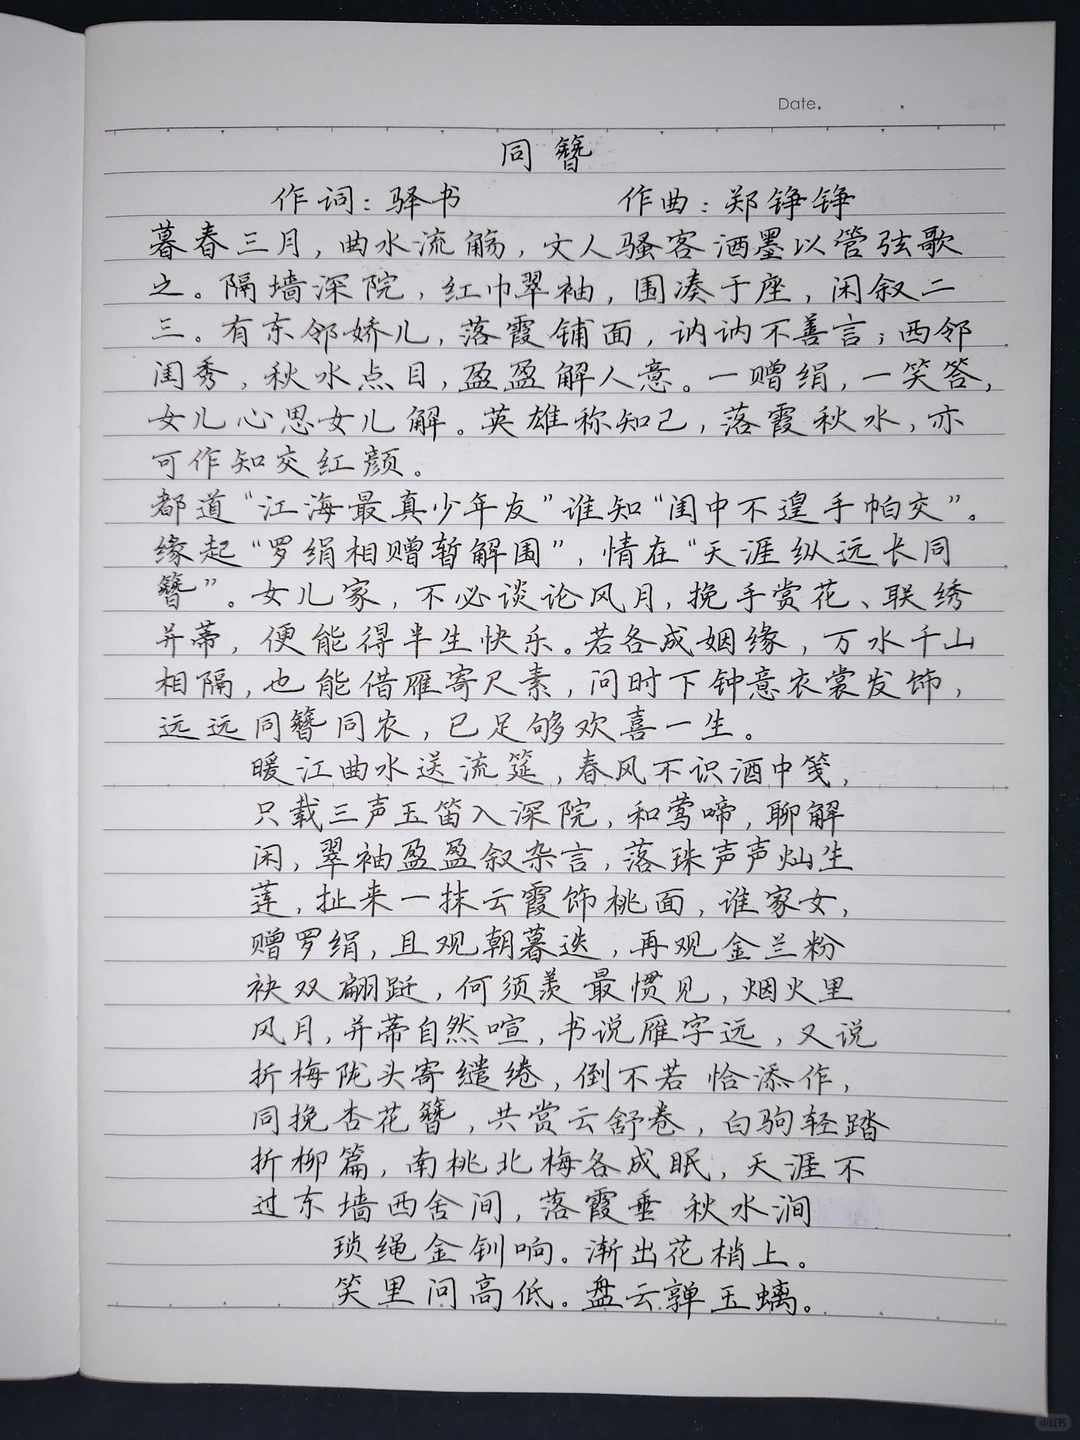 Date.
同簪
作词：驿书 作曲：郑铮铮
暮春三月，曲水流觞，文人骚客洒墨以管弦歌
之。隔墙深院，红巾翠袖，围凑于座，闲叙二
三。有东邻娇儿，落霞铺面，讷讷不善言；西邻
闺秀，秋水点目，盈盈解人意。一赠绢，一笑答，
女儿心思女儿解。英雄称知己，落霞秋水，亦
可作知交红颜。
都道“江海最真少年友”谁知“闺中不遑手帕交”。
缘起“罗绢相赠暂解围”，情在“天涯纵远长同
簪”。女儿家，不必谈论风月，挽手赏花、联绣
并蒂，便能得半生快乐。若各成姻缘，万水千山
相隔，也能借雁寄尺素，问时下钟意衣裳发饰，
远远同簪同衣，已足够欢喜一生。
暖江曲水送流筵，春风不识酒中笺，
只载三声玉笛入深院，和莺啼，聊解
闲，翠袖盈盈叙杂言，落珠声声灿生
莲，扯来一抹云霞饰桃面，谁家女，
赠罗绢，且观朝暮迭，再观金兰粉
袂双翩跹，何须羡最惯见，烟火里
风月，并蒂自然喧，书说雁字远，又说
折梅陇头寄缱绻，倒不若恰添作，
同挽杏花簪，共赏云舒卷，白驹轻踏
折柳篇，南桃北梅各成眠，天涯不
过东墙西舍间，落霞垂 秋水涧
琐绳金钏响。渐出花梢上。
笑里问高低。盘云亸玉螭。
小红书